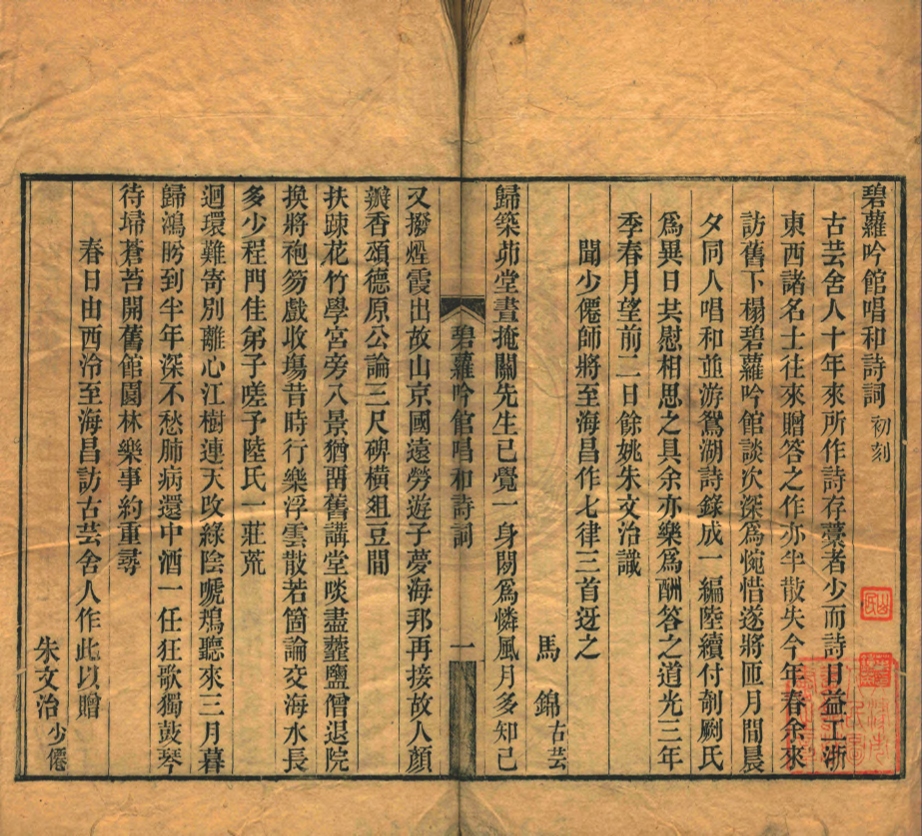 碧蘿吟館唱和詩詞初刻
古芸舍人十年來所作詩存藁者少而詩日益工浙
東西諸名士往來贈答之作亦半散失今年春余來
訪舊下榻碧蘿吟館談次深爲惋惜遂將匝月間晨
夕同人唱和並游鴛湖詩錄成一編陸續付剞劂氏
爲異日共慰相思之具余亦樂爲酬答之道光三年
季春月望前二日餘姚朱文治識
聞少僊師將至海昌作七律三首迓之
馬錦古芸
歸築茆堂晝掩關先生已覺一身閑爲憐風月多知己
碧蘿吟館唱和詩詞
一
又撥煙霞出故山京國遠勞遊子夢海邦再接故人顏
瓣香頌德原公論三尺碑橫爼豆間
扶疎花竹學宮旁八景猶畱舊講堂啖盡虀鹽僧退院
換將袍笏戲收塲昔時行樂浮雲散若箇論交海水長
多少程門佳弟子嗟予陸氏一莊荒
迴環難寄別離心江樹連天改綠陰唬鴂聽來三月暮
歸鴻盻到半年深不愁肺病還中酒一任狂歌獨鼓琴
待埽蒼苔開舊館園林樂事約重尋
春日由西泠至海昌訪古芸舍人作此以贈
朱文治少僊